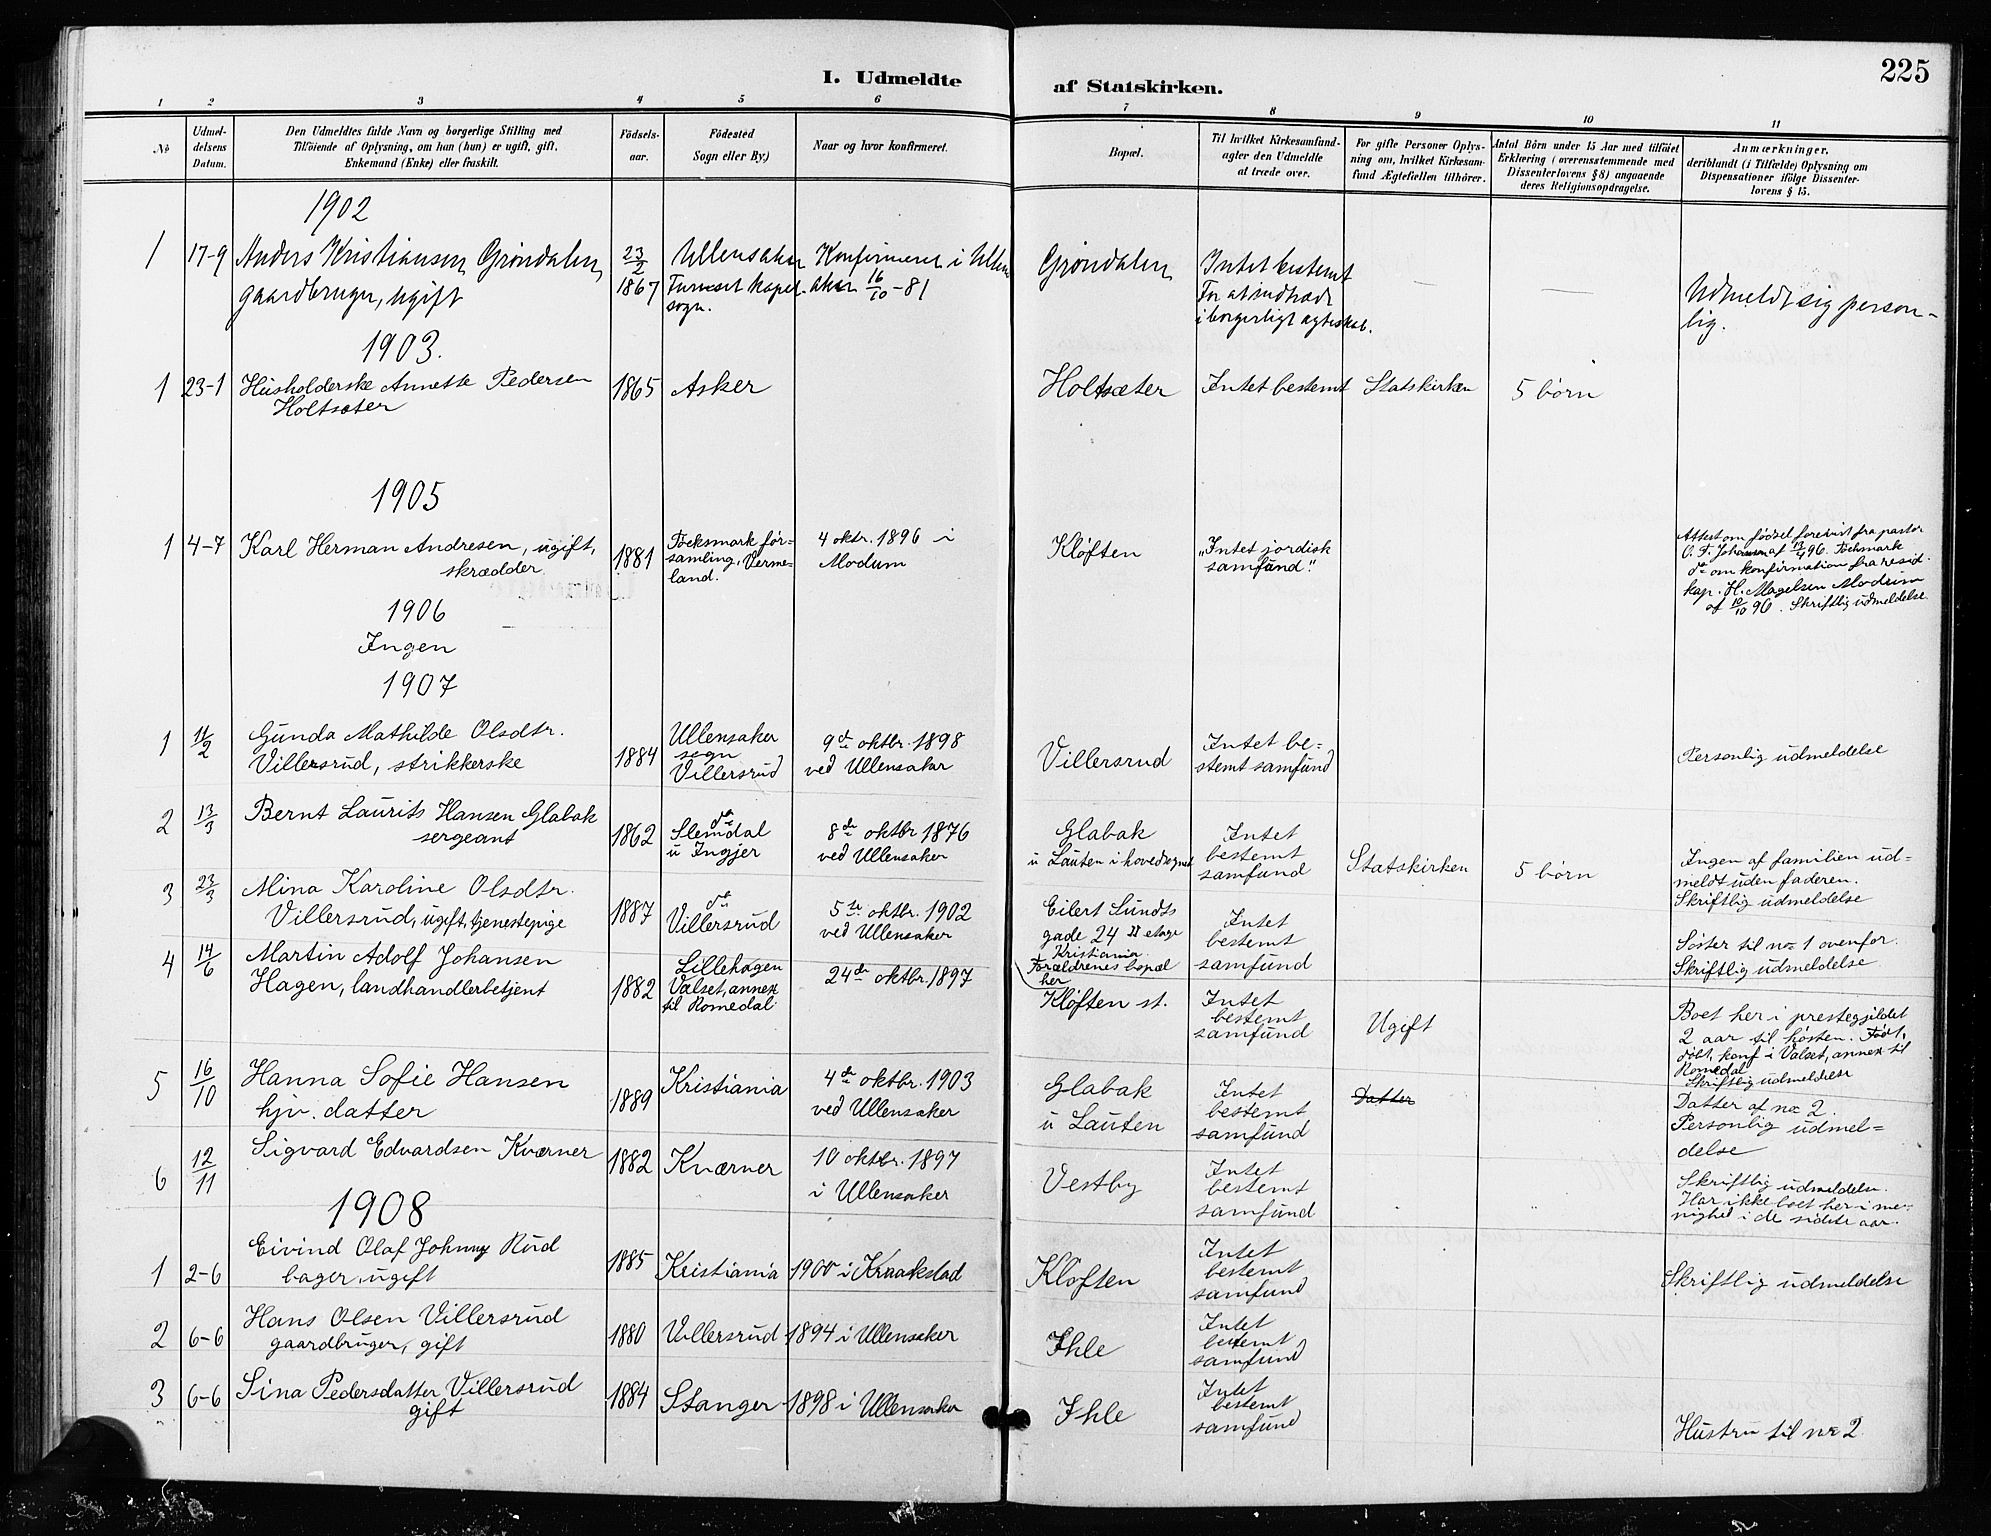 225
I. Udmeldte af Statskirken.
1 2 3 4 5 6 7 8 9 10 11
No
Udmel-
delsens
Datum.
Den Udmeldtes fulde Navn og borgerlige Stilling med
Tilföiende af Oplysning, om han (hun) er ugift, gift,
Enkemand (Enke) eller fraskilt.
Födsels-
aar.
Födested
Sogn eller By.)
Naar og hvor konfirmeret.
Bopæl.
Til hvilket Kirkesamfund-
agter den Udmeldte
at træde over.
For gifte Personer Oplys-
ning om, hvilket Kirkesam-
fund Ægtefællen tilhörer.
Antal Börn under 15 Aar med tilföiet
Erklæring (overensstemmende med
Dissenterlovens § 8) angaaende
deres Religionsopdragelse.
Anmærkninger,
deriblandt (i Tilfælde) Oplysning om
Dispensationer ifölge Dissenter-
lovens § 15.
1902
1
17-9
Anders Kristiansen Grøndalen,
gaardbruger, ugift
23/2
1867
Ullensaker
Furuset kapel-
sogn.
Konfirmeret i Ullens
aker 16/10-81
Grøndalen
Intet bestemt
For at indtræde
i borgerligt ægteskab.
—
—
Udmeldt sig person-
lig.
1903.
1
23-1
Husholderske Annette Pedersen
Holtsæter
1865
Asker
Holtsæter
Intet bestemt
Statskirken
5 børn
1905
1
4-7
Karl Herman Andresen, ugift,
skrædder
1881
Töcksmark för-
samling, Verme-
land.
4 oktr. 1896 i
Modum
Kløften
"Intet jordisk
samfund."
Attest om fødsel forevist fra pastor
O. F. Johansen af 13/4 96. Töchmark
do om konfirmation fra resid.
kap. H. Magelsen Modum
af 10/10 96. Skriftlig udmeldelse
1906
Ingen
1907
1
11/2
Gunda Mathilde Olsdtr.
Villersrud, strikkerske
1884
Ullensaker
sogn
Villersrud
9de oktbr. 1898
ved Ullensaker
Villersrud
Intet be=
stemt samfund
Personlig udmeldelse
2
13/3
Bernt Laurits Hansen Glabak
sergeant
1862
do
Slemdal
u Ingjer
8de oktbr 1876
ved Ullensaker
Glabak
u Lauten i hovedsognet
Intet
bestemt
samfund
Statskirken
5 børn
Ingen af familien ud=
meldt uden faderen.
Skriftlig udmeldelse
3
23/3
Mina Karoline Olsdtr.
Villersrud, ugift, tjenestepige
1887
do
Villersrud
5te oktbr. 1902
ved Ullensaker
Eilert Sundts
gade 24 II etage
Kristiania
Forældrenes bopæl
her
Intet
bestemt
samfund
Søster til no 1 ovenfor.
Skriftlig udmeldelse
4
14/6
Martin Adolf Johansen
Hagen, landhandlerbetjent
1882
Lillehagen
Valset, annex
til Romedal
24de oktbr. 1897
Kløften st.
Intet
bestemt
samfund
Ugift
Boet her i prestegjeldet
2 aar til høsten. Født,
døbt, konf i Valset, annex til
Romedal
Skriftlig udmeldelse
5
16/10
Hanna Sofie Hansen
hjv. datter
1889
Kristiania
4de oktbr. 1903
ved Ullensaker
Glabak
u Lauten
Intet
bestemt
samfund
Datter
Datter af no 2.
Personlig udmel=
delse
6
12/11
Sigvard Edvardsen Kværner
1882
Kværner
10 oktbr. 1897
i Ullensaker
Vestby
Intet
bestemt
samfund
Skriftlig udmeldelse.
Har ikke boet her i me-
nighed i de sidste aar.
1908
1
2-6
Eivind Olaf Johnny Rud
bager, ugift
1885
Kristiania
1900 i Kraakstad
Kløften
Intet
bestemt
samfund
Skriftlig udmeldelse
2
6-6
Hans Olsen Villersrud
gaardbruger, gift
1880
Villersrud
1894 i Ullensaker
Ihle
Intet
bestemt
samfund
3
6-6
Sina Pedersdatter Villersrud
gift
1884
Stanger
1898 i Ullensaker
Ihle
Intet
bestemt
samfund
Hustru til no 2